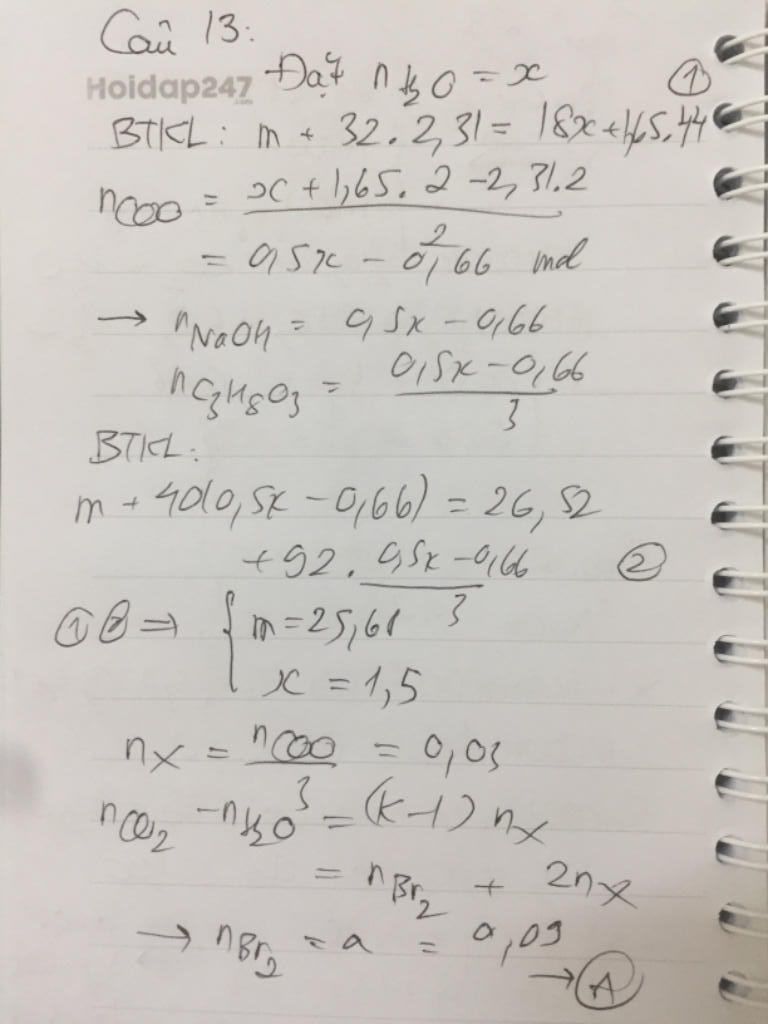 Câu 13:
Đặt nH2O = x ①
Hoidap247
.com
BTKL: m + 32.2,31 = 18x + 1,65.44
nCOO = (x + 1,65.2 - 2,31.2)/2
= 0,5x - 0,66 mol
→ nNaOH = 0,5x - 0,66
nC3H8O3 = (0,5x - 0,66)/3
BTKL:
m + 40(0,5x - 0,66) = 26,52
+ 92. (0,5x - 0,66)/3 ②
①② ⇒ { m = 25,68
x = 1,5
nX = nCOO/3 = 0,03
nCO2 - nH2O = (k-1) nX
= nBr2 + 2nX
→ nBr2 = a = 0,09
→ Ⓐ